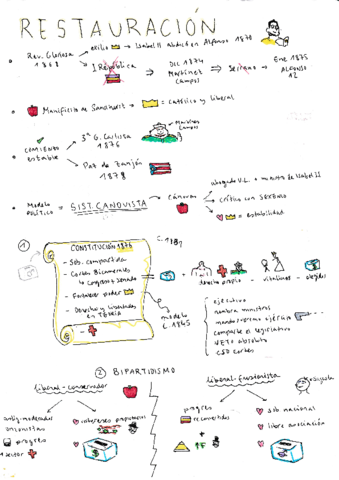 RESTAURACIÓN
Rev. Gloriosa
1868
exilio → Isabel II Abdica en Alfonso 1870
I República
DIC 1874
Martínez
Campos
Serrano
Ene 1875
Alfonso
12
Manifiesto de Sandhurst → = Católico y liberal
COMIENZO
estable
3ª G. Carlista
1876
Martínez
Campos
Paz de Zanjón
1878
Modelo
POLÍTICO = SIST. CANOVISTA
Cánovas
abogado U.L. + ministro de Isabel II
Crítico con SEXENIO
= estabilidad
1
CONSTITUCIÓN 1876
- Sob. compartida
- Cortes Bicamerales
↳ congreso y senado
- Fortalece poder
- Derechos y libertades
en TEORÍA
modelo
C. 1845
derecho propio
vitalicios
elegidos
ejecutivo
nombra ministros
mando supremo ejército
comparte el legislativo
VETO absoluto
② BIPARTIDISMO
liberal-conservador
liberal-fusionista
antig-moderados
unionistas
progreso
+ sector
progres
reconvertidos
sob nacional
libre asociación